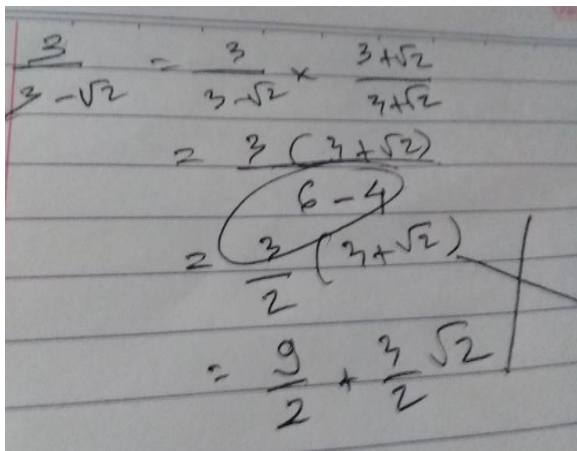 3/(3-√2) = 3/(3-√2) × (3+√2)/(3+√2)
= 3(3+√2)/(6-4)
= 3/2 (3+√2)
= 9/2 + 3/2 √2